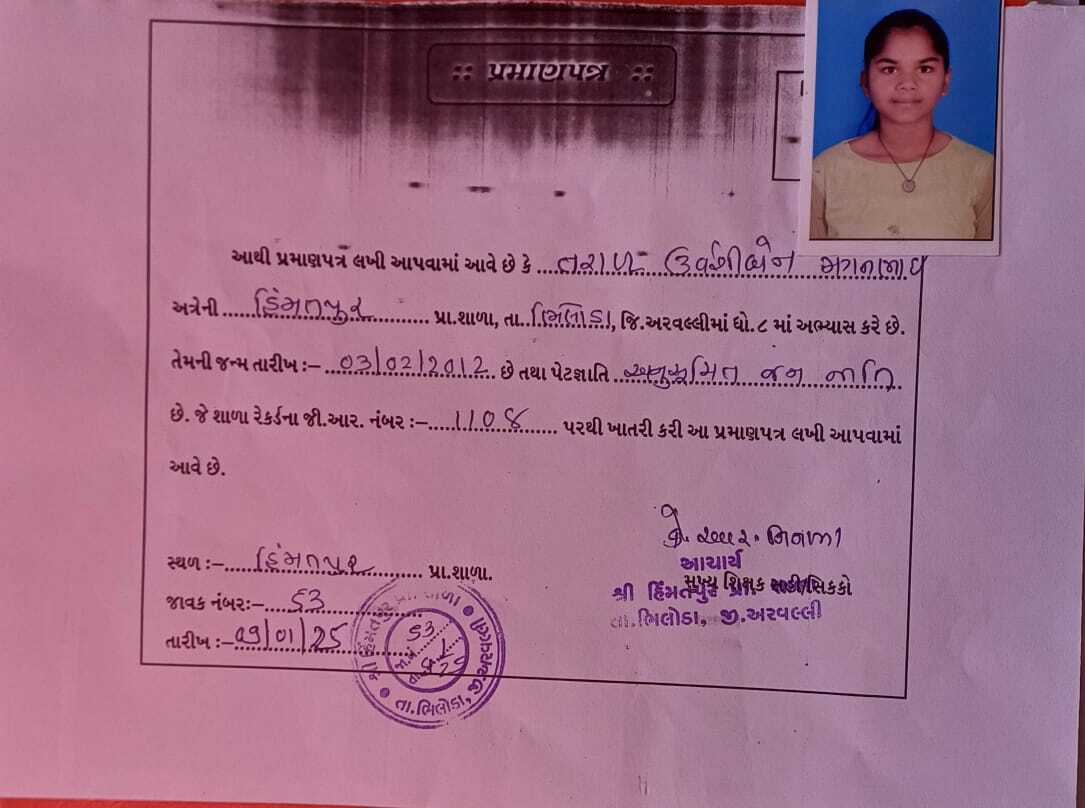 :: પ્રમાણપત્ર ::
આથી પ્રમાણપત્ર લખી આપવામાં આવે છે કે ....તરાળ ઉર્વશીબેન મગનભાઈ
અત્રેની .....હિંમતપુર............ પ્રા.શાળા, તા..ભિલોડા, જિ.અરવલ્લીમાં ધો.૮ માં અભ્યાસ કરે છે.
તેમની જન્મ તારીખ :– ..03/02/2012.. છે તથા પેટાજ્ઞાતિ ..અનુસૂચિત જન જાતિ
છે. જે શાળા રેકર્ડના જી.આર. નંબર :–....1108...... પરથી ખાતરી કરી આ પ્રમાણપત્ર લખી આપવામાં
આવે છે.
કે. આર. નિનામા
આચાર્ય
મુખ્ય શિક્ષક સહી/સિકકો
શ્રી હિંમતપુર પ્રા. શાળા
તા.ભિલોડા, જી.અરવલ્લી
સ્થળ :–.....હિંમતપુર......... પ્રા.શાળા.
જાવક નંબર:–....53............
તારીખ :–09/01/25............
શ્રી હિંમતપુર પ્રા. શાળા
તા.ભિલોડા, જી.અરવલ્લી
53